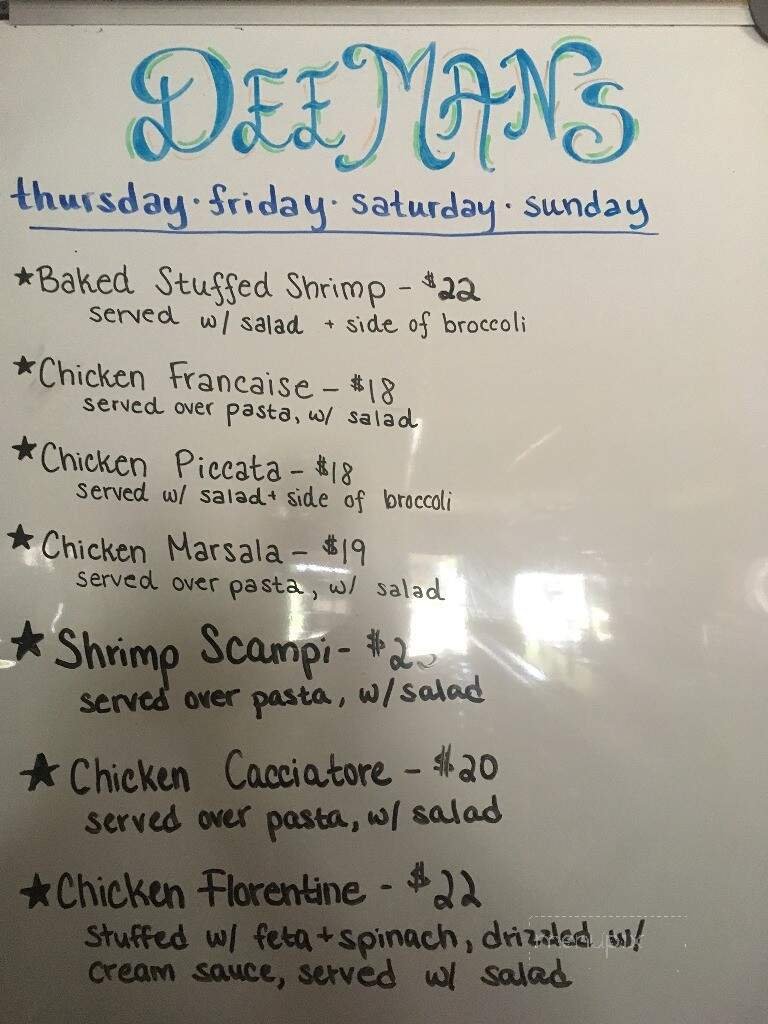 DEEMANS
thursday · friday · saturday · sunday
★Baked Stuffed Shrimp - $22
served w/ salad + side of broccoli
★Chicken Francaise - $18
served over pasta, w/ salad
★Chicken Piccata - $18
served w/ salad + side of broccoli
★Chicken Marsala - $19
served over pasta, w/ salad
★Shrimp Scampi-
served over pasta, w/ salad
★Chicken Cacciatore - $20
served over pasta, w/ salad
★Chicken Florentine - $22
stuffed w/ feta + spinach, drizzled w/
cream sauce, served w/ salad